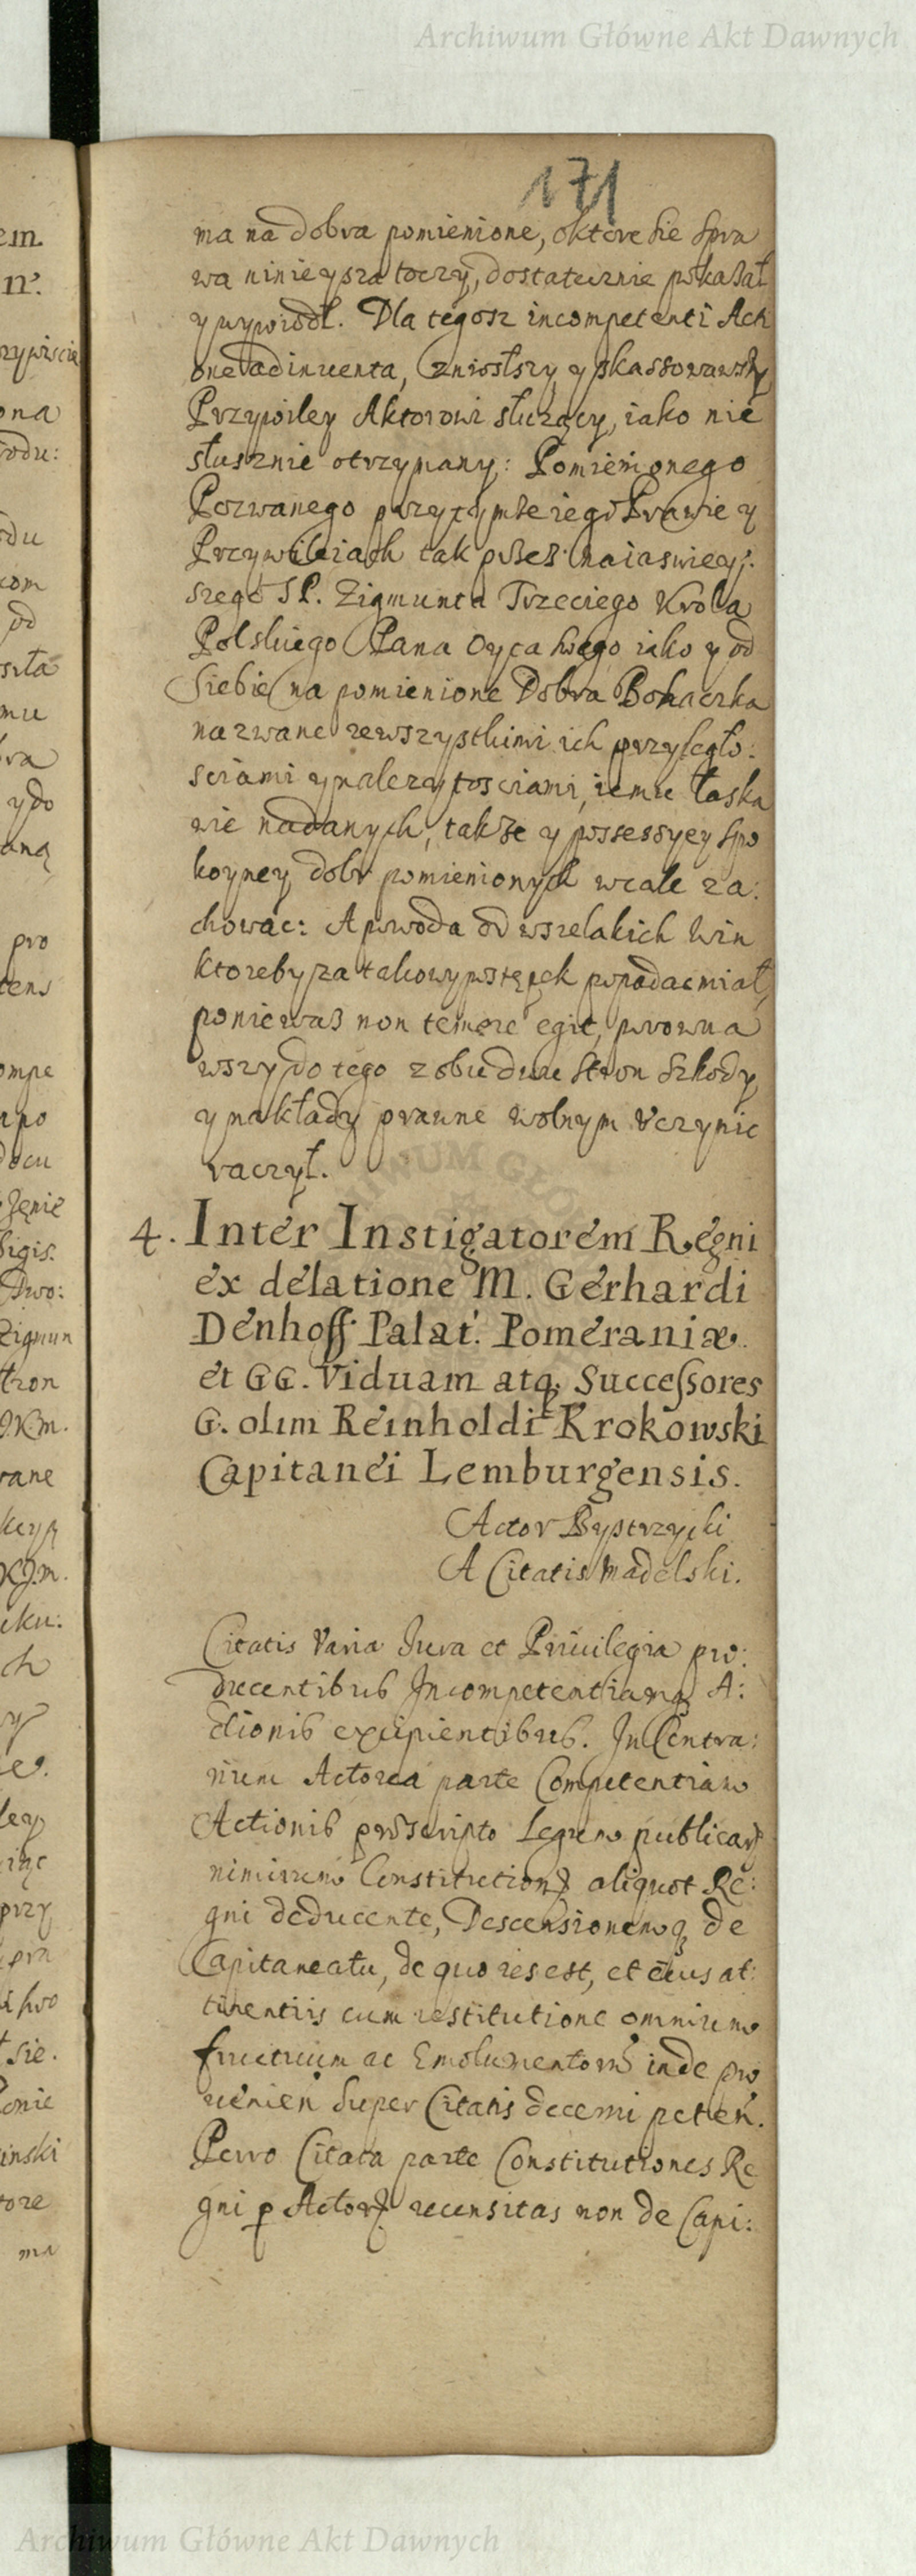 Archiwum Główne Akt Dawnych
171
em
ma na dobra pomienione, oktore sie spra
wa ninieysza toczy, dostatecznie pokazał
y wywiodł. Dla tegosz incompetenti Acti
one adinuenta, zniosłszy y skassowawszy
Przywiley Aktorowi słuzący, iako nie
słusznie otrzymany: Pomienionego
Pozwanego przy tymze iego Prawie y
Przywileiach tak przez naiasniey:
szego SP. Zigmunta Trzeciego Krola
Polskiego Pana Oyca swego iako y od
Siebie na pomienione Dobra Bohaczka
nazwane ze wszystkimi ich przyległo:
sciami y nalezytosciami, iemu łaska
wie nadanych, takze y possessyey spo
koyney dobr pomienionych wcale za:
chowac: A powoda od wszelakich win
ktoreby za takowy postępek popadac miał,
poniewasz non temere egit, porowna
wszy do tego z obudwu stron szkody
y nakłady prawne wolnym uczynic
raczył.
4. Inter Instigatorem Regni
ex delatione M. Gerhardi
Denhoff Palat. Pomeraniæ
et GG. Viduam atq; Successores
G. olim Reinholdi Krokowski
Capitanei Lemburgensis.
Actor Bystrzycki
A Citatis Madelski.
Citatis Varia Jura et Priuilegia pro:
ducentibus Incompetentiamq; A:
ctionis excipientibus. In Contra:
rium Actorea parte Competentiam
Actionis præscripto Legum publicar
nimirum Constitution aliquot Re:
gni deducente, Descensionemq; de
Capitaneatu, de quo res est, et eius at:
tinentiis cum restitutione omnium
fructuum ac Emolumentorum inde pro
uenien super Citatis decerni peten.
Porro Citata parte Constitutiones Re
gni p Actor recensitas non de Capi:
Archiwum Główne Akt Dawnych